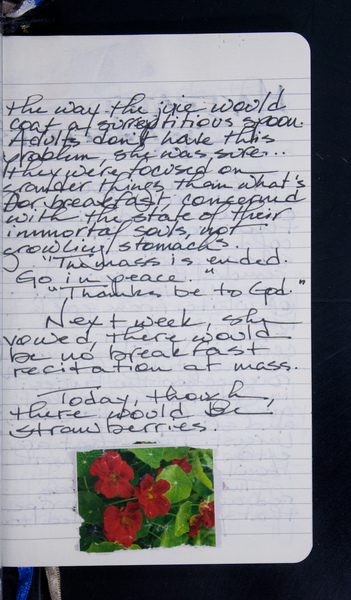 the way the juice would
coat a surreptitious spoon.
Adults don't have this
problem, she was sure..
they were focused on
grander things than what's
for breakfast, concerned
with the state of their
immortal souls, not
growling stomachs.
"The mass is ended.
Go in peace."
"Thanks be to God."
Next week, she
vowed, there would
be no breakfast
recitation at mass.
Today, though,
there would be
strawberries.